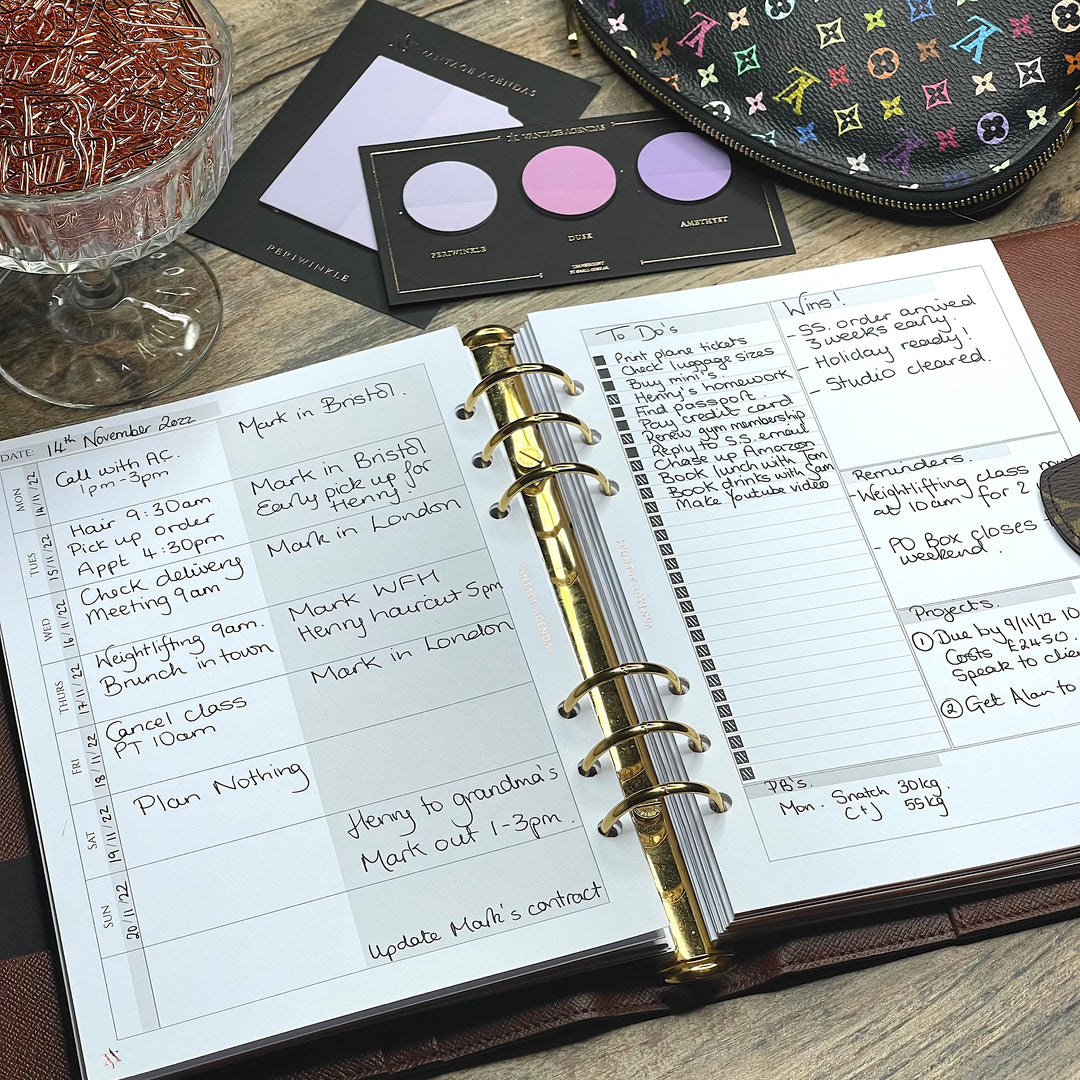 VANTAGE AGENDAS
PERIWINKLE
VANTAGE AGENDAS
PERIWINKLE
DUSK
AMETHYST
DATE: 14th November 2022
MON 14/11/22
Call with AC.
1pm-3pm
Mark in Bristol.
TUES 15/11/22
Hair 9:30am
Pick up order
Appt 4:30pm
Mark in Bristol
Early pick up for
Henry.
WED 16/11/22
Check delivery
Meeting 9am
Mark in London
THURS 17/11/22
Weightlifting 9am.
Brunch in town
Mark WFH
Henry haircut 5pm
FRI 18/11/22
Cancel class
PT 10am
Mark in London
SAT 19/11/22
Plan Nothing
Henry to grandma's
Mark out 1-3pm.
SUN 20/11/22
Update Mark's contract
VANTAGE AGENDAS
VANTAGE AGENDAS
To Do's
Print plane tickets
Check luggage sizes
Buy mini's
Henry's homework
Find passport.
Pay credit card
Renew gym membership
Reply to S.S. email
Chase up Amazon
Book lunch with Tom
Book drinks with Sam
Make Youtube video
Wins!
- SS. order arrived
3 weeks early.
- Holiday ready!
- Studio cleared.
Reminders.
-Weightlifting class
at 10am for 2
- PO Box closes -
weekend.
Projects.
① Due by 9/11/22 10
Costs £2450.
Speak to clie
② Get Alan to
PB's.
Mon. Snatch 30kg.
C+J 55kg